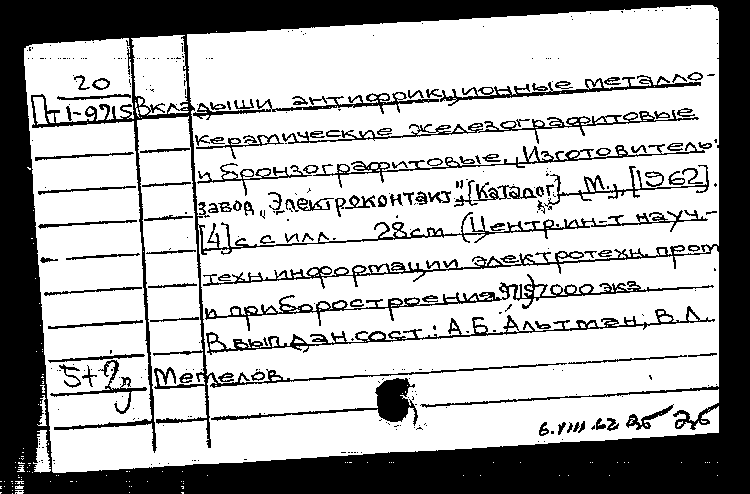 20
Пт1-9715 Вкладыши антифрикционные металло-
керамические железографитовые
и бронзографитовые. Изготовитель:
завод „Электроконтакт". [Каталог]. М., [1962].
[4] с. с илл. 28см (Центр. ин-т науч.-
техн. информации электротехн. пром
и приборостроения. 9715) 7000 экз.
В вып. дан. сост.: А.Б. Альтман, В.Л.
5+2 Мемелов.
6.VIII.62